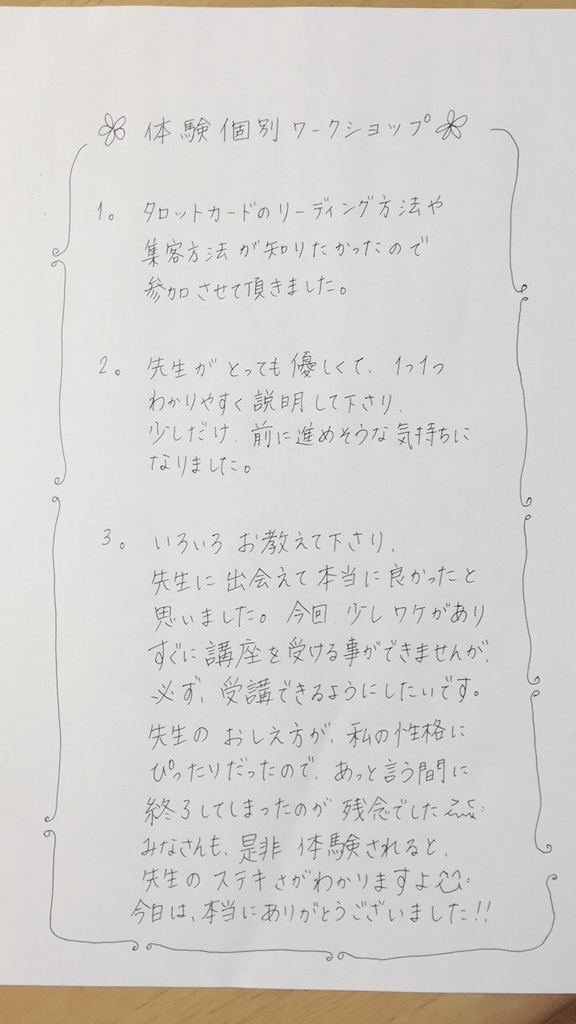 体験個別ワークショップ
1。 タロットカードのリーディング方法や
集客方法が知りたかったので
参加させて頂きました。
2。 先生がとっても優しくて、1つ1つ
わかりやすく説明して下さり、
少しだけ、前に進めそうな気持ちに
なりました。
3。 いろいろお教えて下さり、
先生に出会えて本当に良かったと
思いました。今回、少しワケがあり
すぐに講座を受ける事ができませんが、
必ず、受講できるようにしたいです。
先生のおしえ方が、私の性格に
ぴったりだったので、あっと言う間に
終了してしまったのが残念でした
みなさんも、是非体験されると、
先生のステキさがわかりますよ
今日は、本当にありがとうございました!!